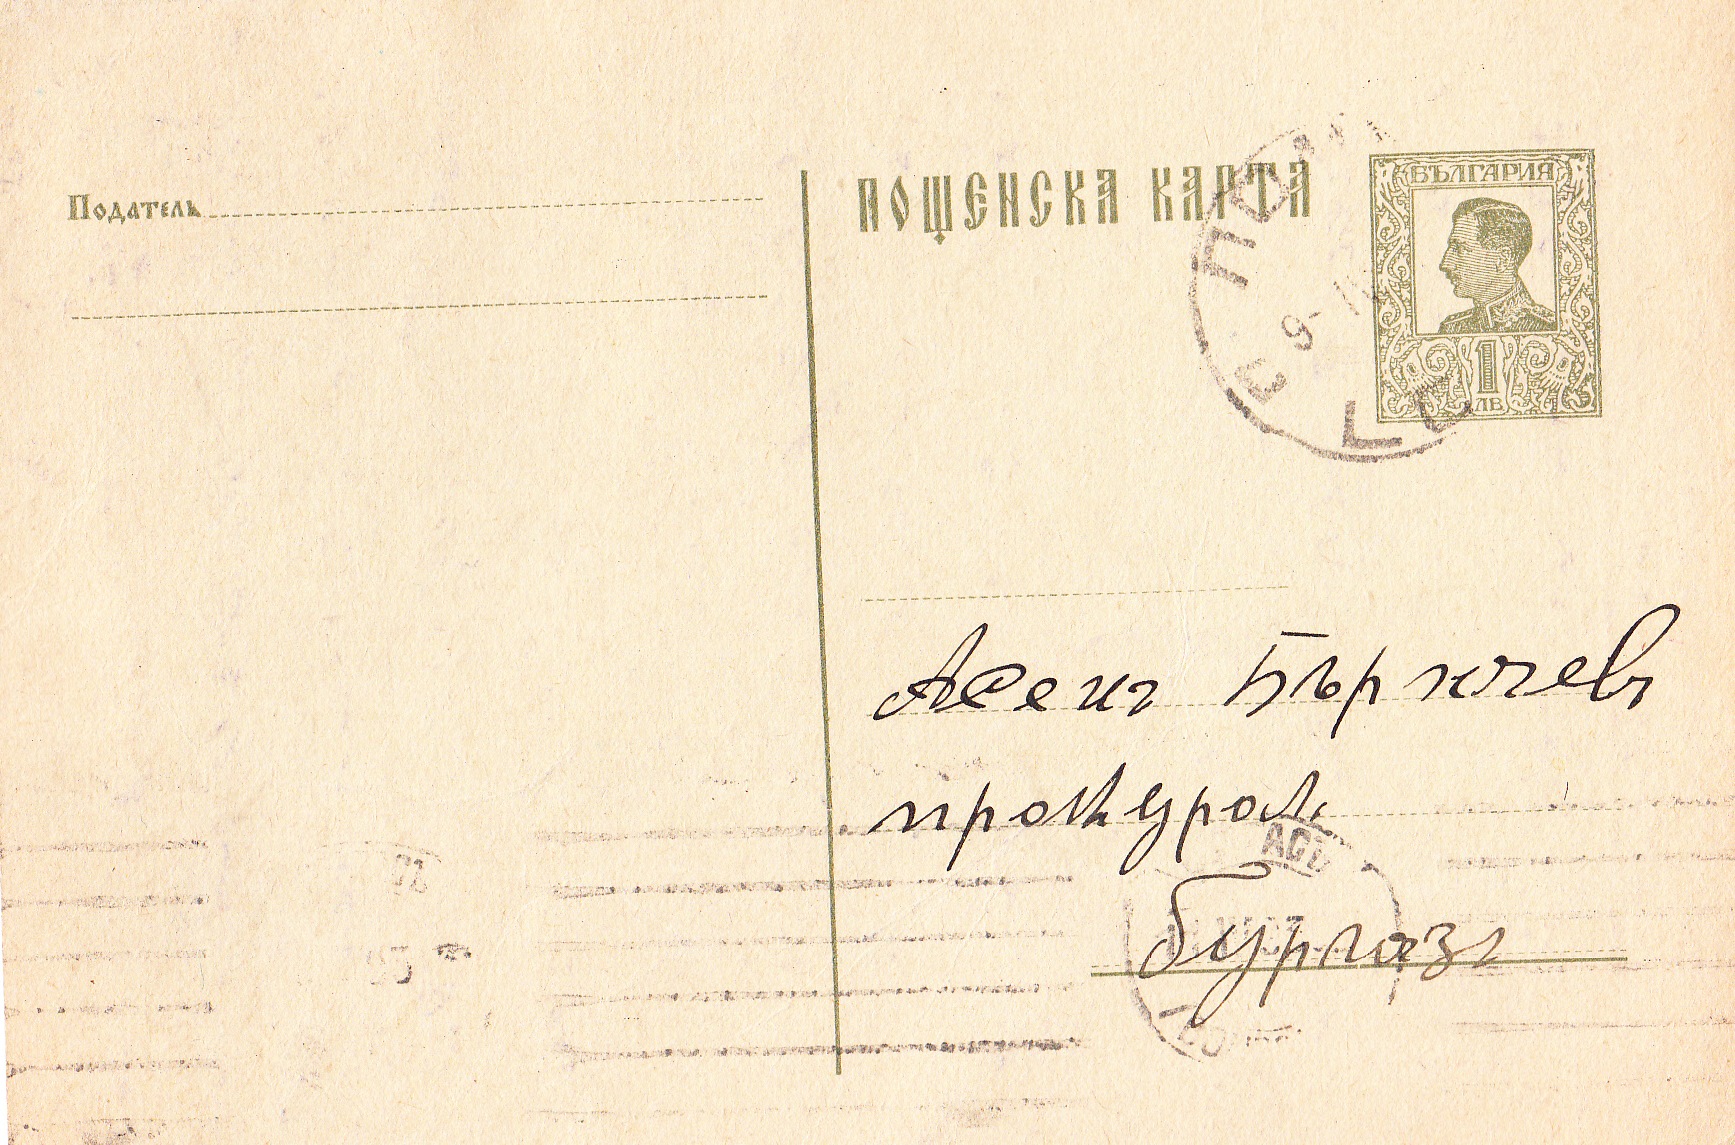 Податель
ПОЩЕНСКА КАРТА
БЪЛГАРИЯ
1
ЛВ
Асенъ Бъркчевъ
прокурол
Бургазъ